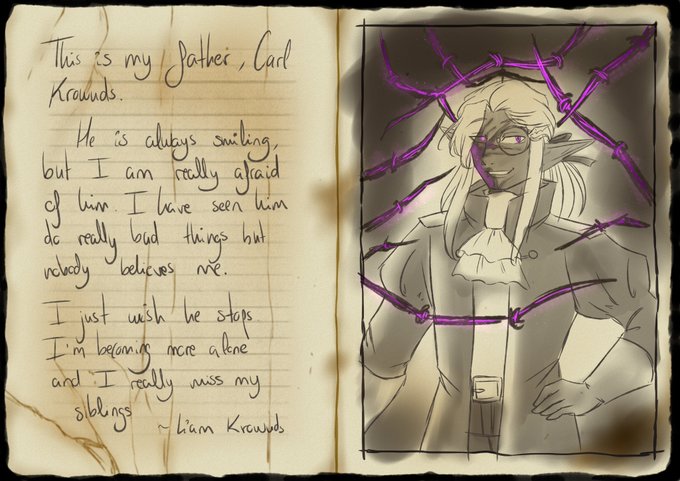 This is my father, Carl
Krowuds.
He is always smiling,
but I am really afraid
of him. I have seen him
do really bad things but
nobody believes me.
I just wish he stops
I'm becoming more alone
and I really miss my
siblings
~ Liam Krowuds